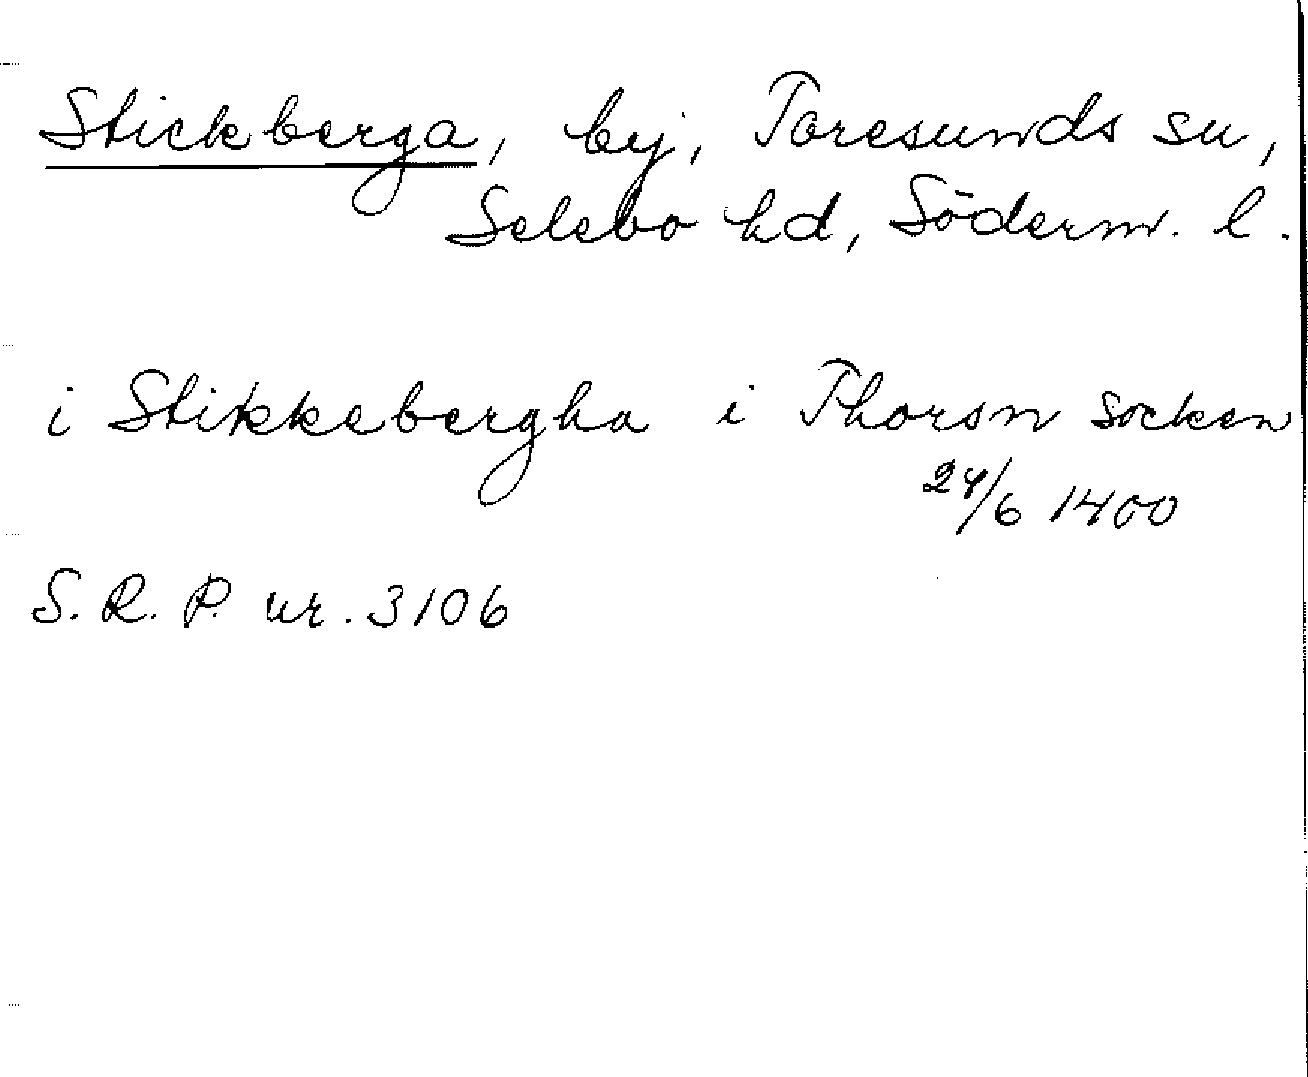 Stickberga, by, Toresunds sn,
Selebo hd, Söderm. l.
i Stikkabergha i Thorsn socken
24/6 1400
S. R. P. nr. 3106